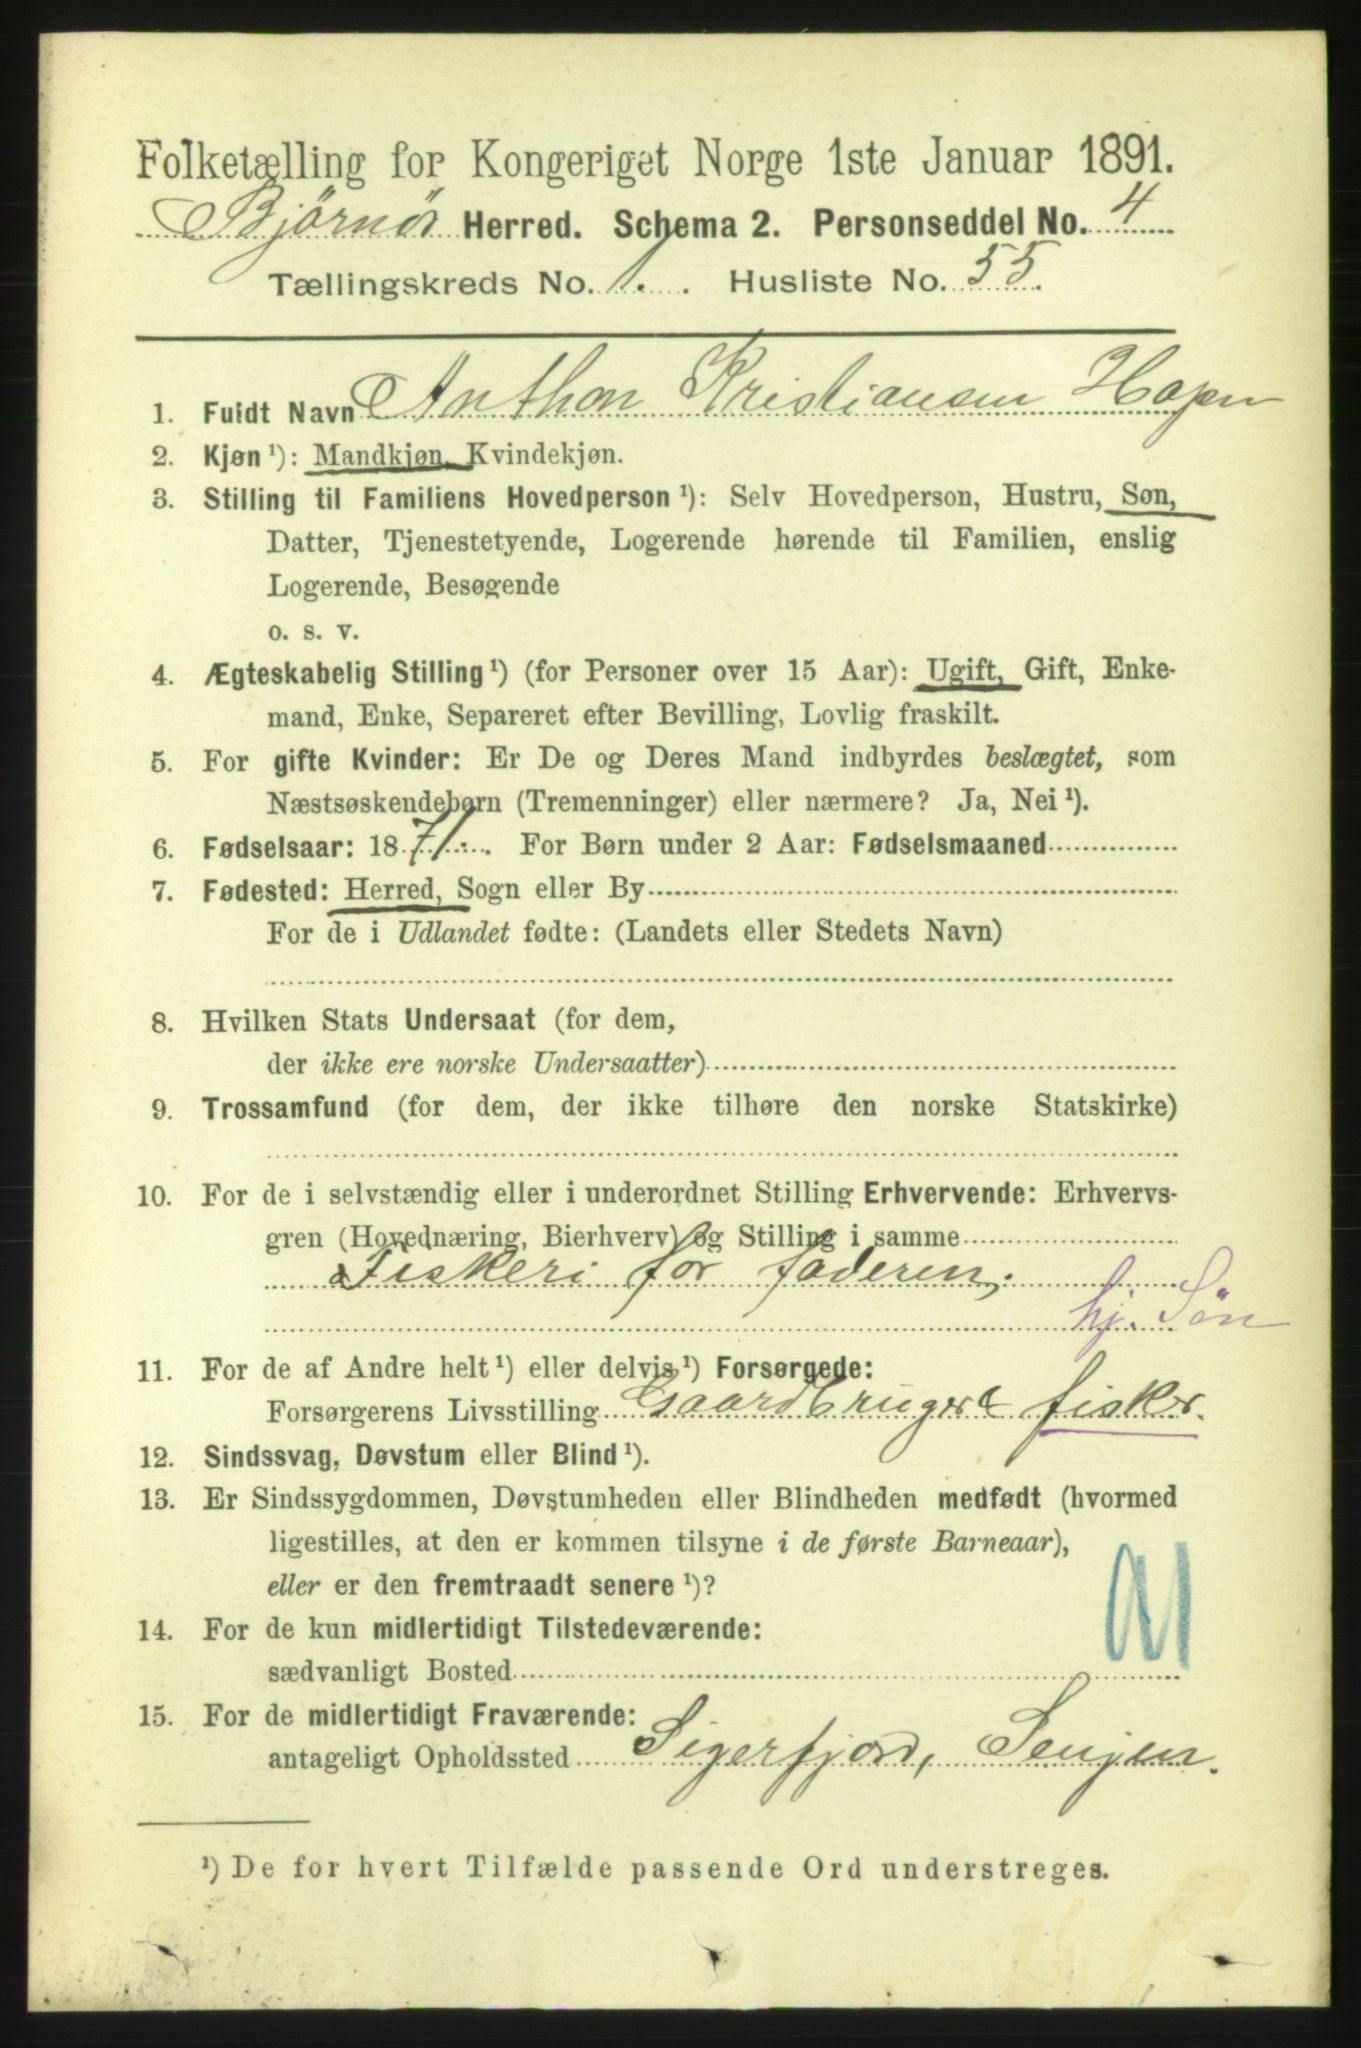 Folketælling for Kongeriget Norge 1ste Januar 1891.
Bjørnør Herred. Schema 2. Personseddel No. 4
Tællingskreds No. 1. Husliste No. 55.
1. Fuldt Navn Anthon Kristiansen Hopen
2. Kjøn ¹): Mandkjøn, Kvindekjøn.
3. Stilling til Familiens Hovedperson ¹): Selv Hovedperson, Hustru, Søn,
Datter, Tjenestetyende, Logerende hørende til Familien, enslig
Logerende, Besøgende
o. s. v.
4. Ægteskabelig Stilling ¹) (for Personer over 15 Aar): Ugift, Gift, Enke-
mand, Enke, Separeret efter Bevilling, Lovlig fraskilt.
5. For gifte Kvinder: Er De og Deres Mand indbyrdes beslægtet, som
Næstsøskendebørn (Tremenninger) eller nærmere? Ja, Nei ¹).
6. Fødselsaar: 1871. For Børn under 2 Aar: Fødselsmaaned
7. Fødested: Herred, Sogn eller By
For de i Udlandet fødte: (Landets eller Stedets Navn)
8. Hvilken Stats Undersaat (for dem,
der ikke ere norske Undersaatter)
9. Trossamfund (for dem, der ikke tilhøre den norske Statskirke)
10. For de i selvstændig eller i underordnet Stilling Erhvervende: Erhvervs-
gren (Hovednæring, Bierhverv) og Stilling i samme
Fiskeri for faderen.
hj. Søn
11. For de af Andre helt ¹) eller delvis ¹) Forsørgede:
Forsørgerens Livsstilling Gaardbruger & fisker.
12. Sindssvag, Døvstum eller Blind ¹).
13. Er Sindssygdommen, Døvstumheden eller Blindheden medfødt (hvormed
ligestilles, at den er kommen tilsyne i de første Barneaar),
eller er den fremtraadt senere ¹)?
14. For de kun midlertidigt Tilstedeværende:
sædvanligt Bosted
15. For de midlertidigt Fraværende:
antageligt Opholdssted Sigerfjord, Senjen.
¹) De for hvert Tilfælde passende Ord understreges.